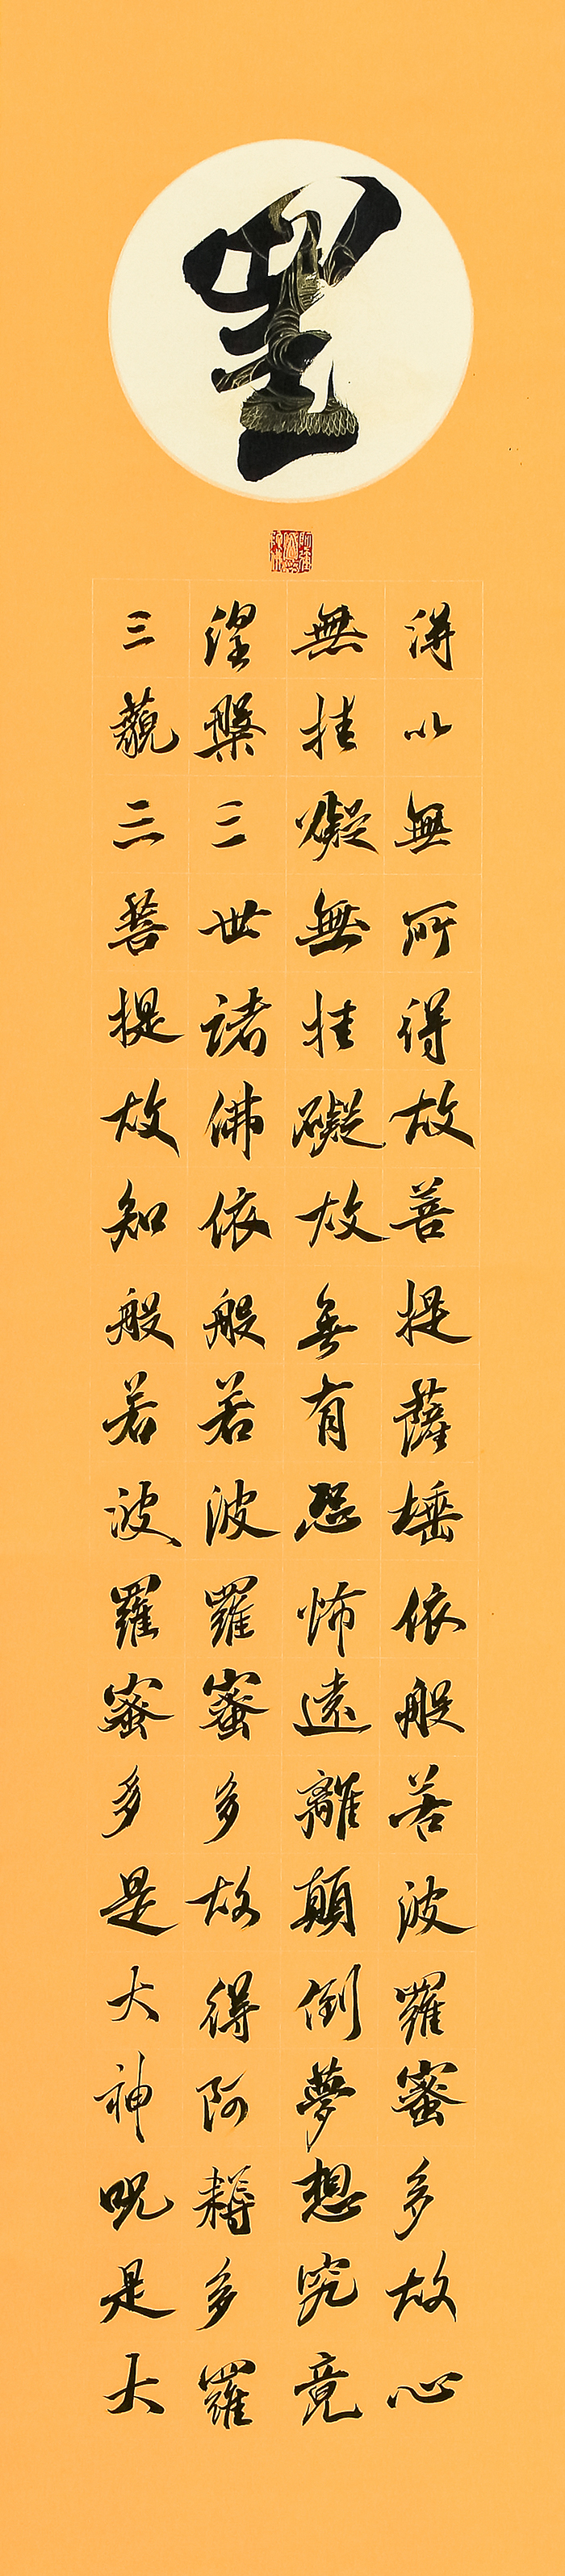 得以無所得故菩提薩埵依般若波羅蜜多故心
無挂礙無挂礙故無有恐怖遠離顛倒夢想究竟
涅槃三世諸佛依般若波羅蜜多故得阿耨多羅
三藐三菩提故知般若波羅蜜多是大神呪是大